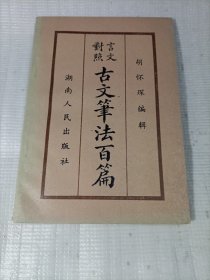 胡怀琛编辑
言文
對照
古文筆法百篇
湖南人民出版社